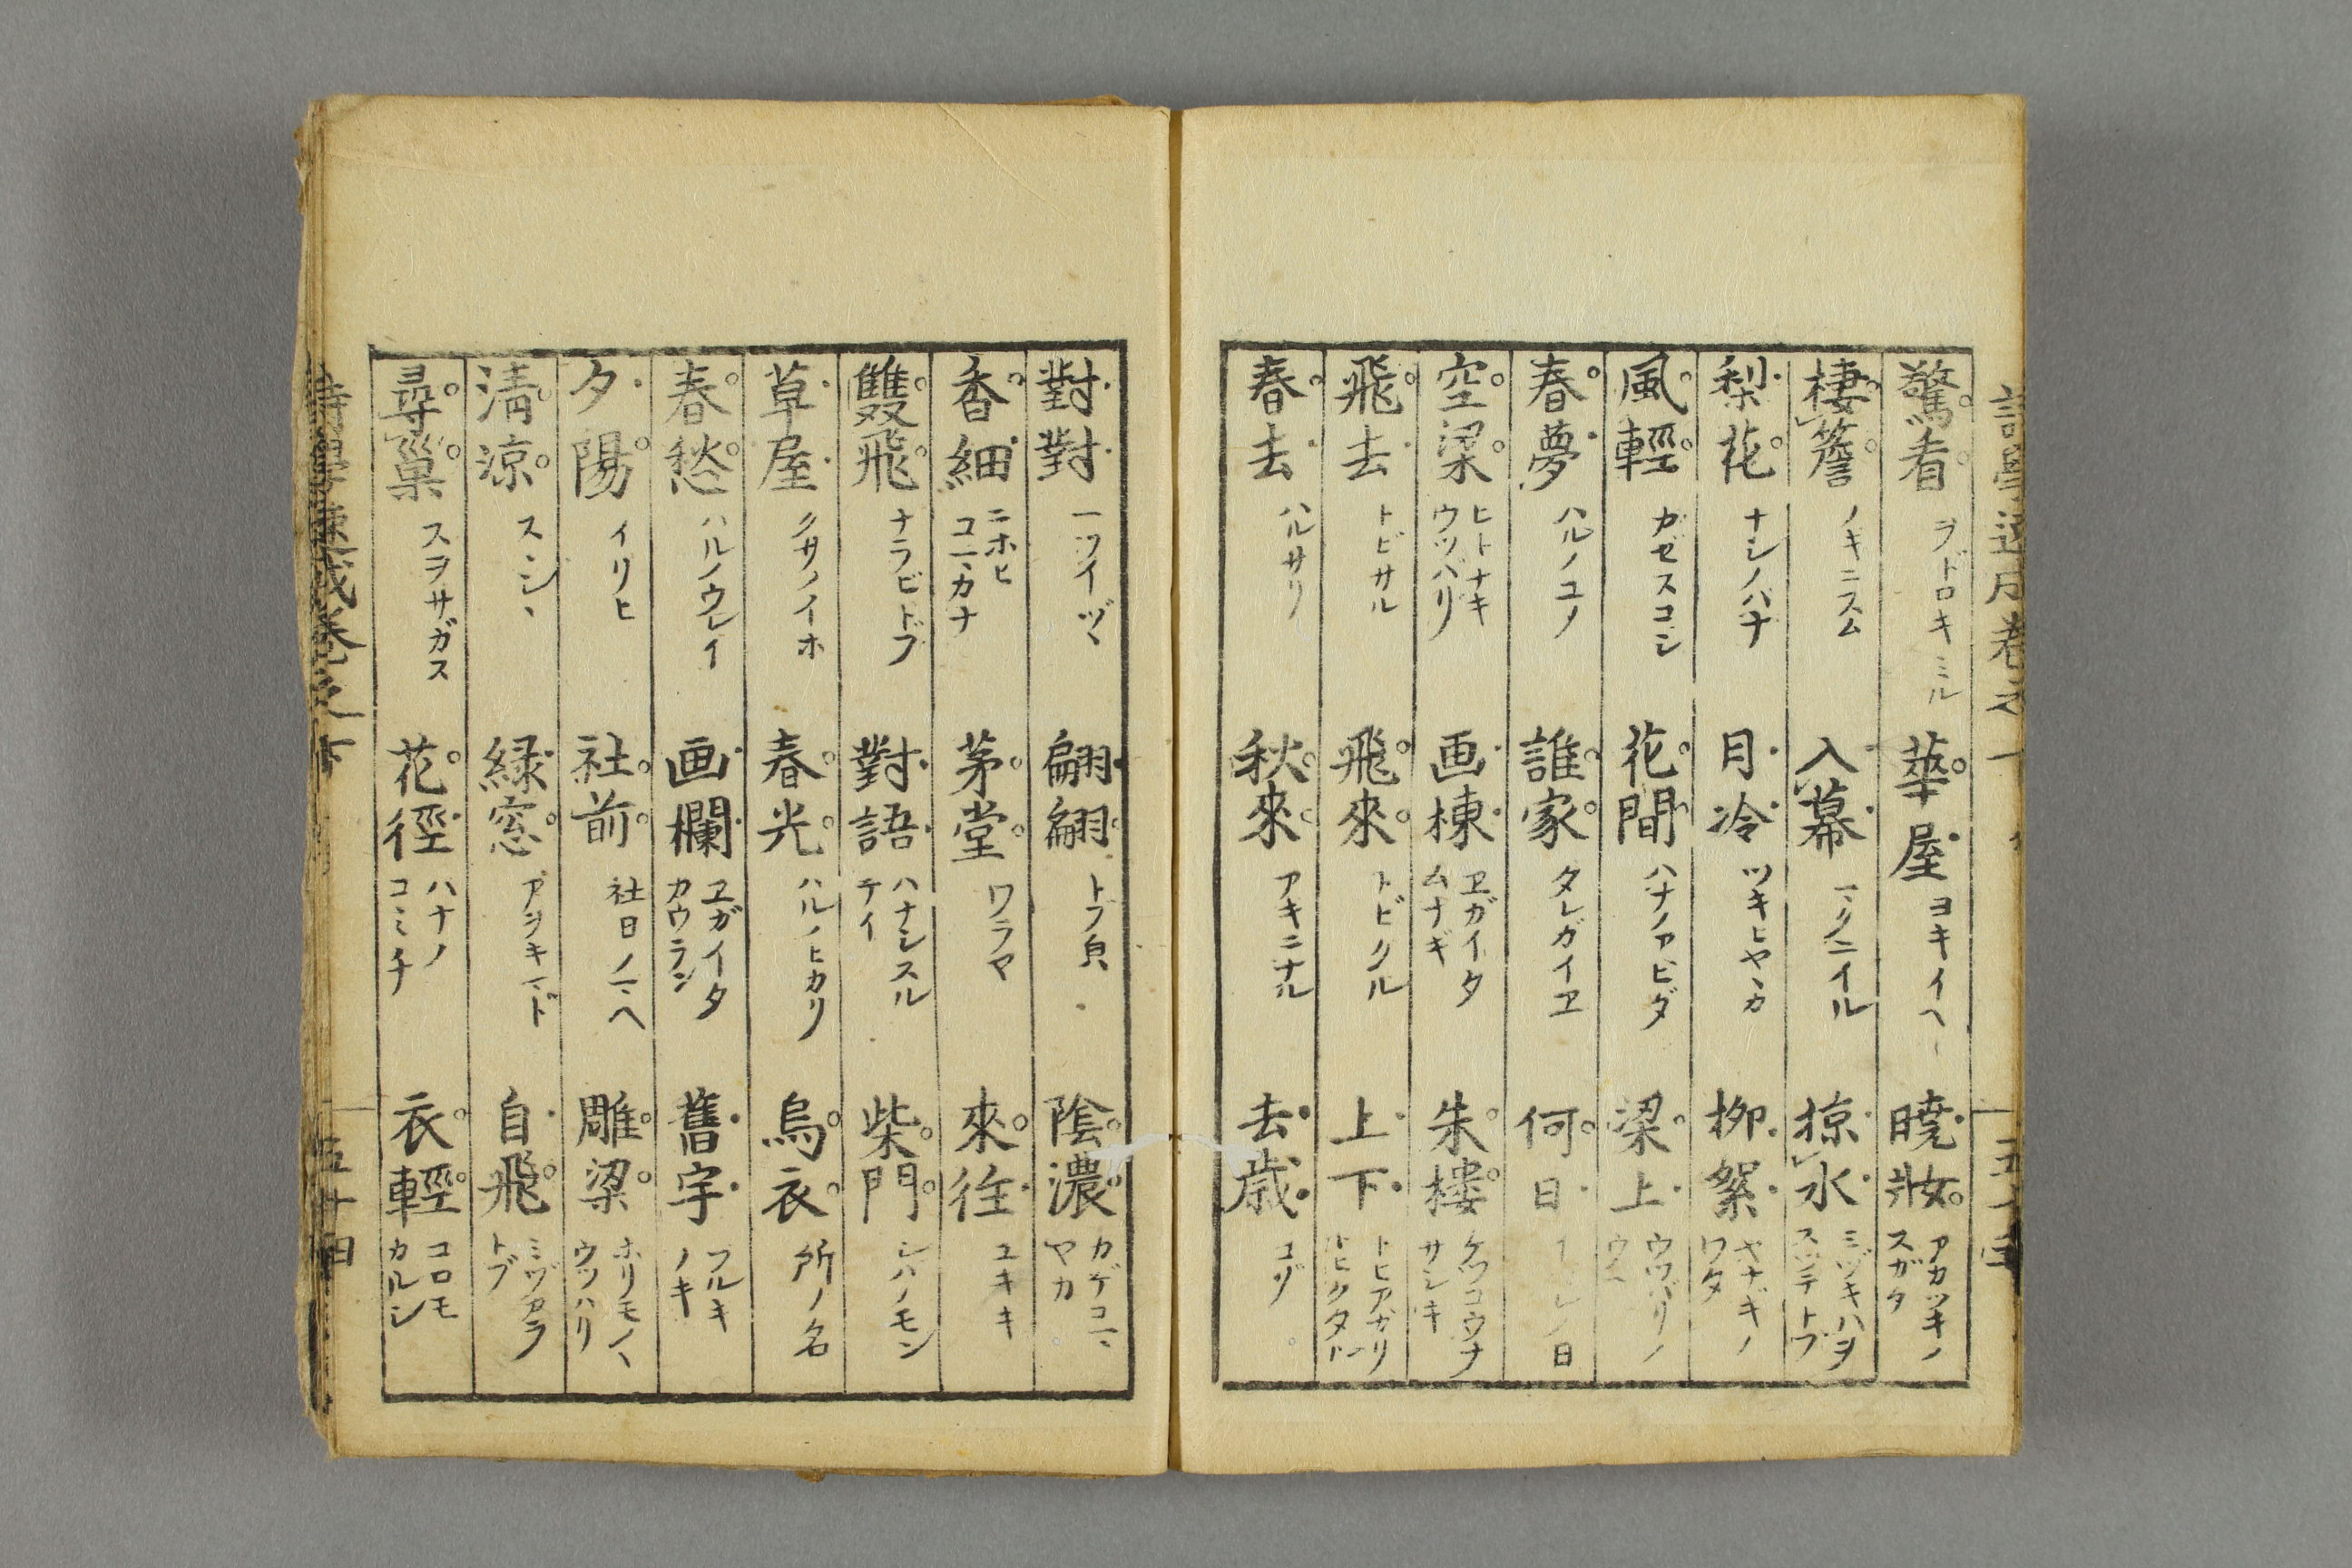 驚看 ヲドロキミル 華屋 ヨキイヘ 暁妝 アカツキノスガタ
棲簷 ノキニスム 入幕 マクニイル 掠水 ミヅキハヲスツテトブ
梨花 ナシノハナ 月冷 ツキヒヤヽカ 柳絮 ヤナギノワタ
風輕 カゼスコシ 花間 ハナノアヒダ 梁上 ウツバリノウヘ
春夢 ハルノユメ 誰家 タレガイヱ 何日 日
空梁 ヒトナキウツバリ 画棟 ヱガイタムナギ 朱樓 ケツコウナサシキ
飛去 トビサル 飛來 トビクル 上下 トビアガリ
春去 ハルサリ 秋來 アキニナル 去歳 コゾ
對對 一ツイヅヽ 翩翩 トフ皃 陰濃 カゲコマヤカ
香細 ニホヒコマカナ 茅堂 ワラヤ 來往 ユキキ
雙飛 ナラビトブ 對語 ハナシスルテイ 柴門 シバノモン
草屋 クサノイホ 春光 ハルノヒカリ 烏衣 所ノ名
春愁 ハルノウレイ 画欄 ヱガイタカウラン 舊宇 フルキノキ
夕陽 イリヒ 社前 社日ノマヘ 雕梁 ホリモノヽウツハリ
淸涼 スヽシ 緑窓 アヲキマド 自飛 ミヅカラトブ
尋巢 スヲサガス 花徑 ハナノコミチ 衣輕 コロモカルシ
五十四